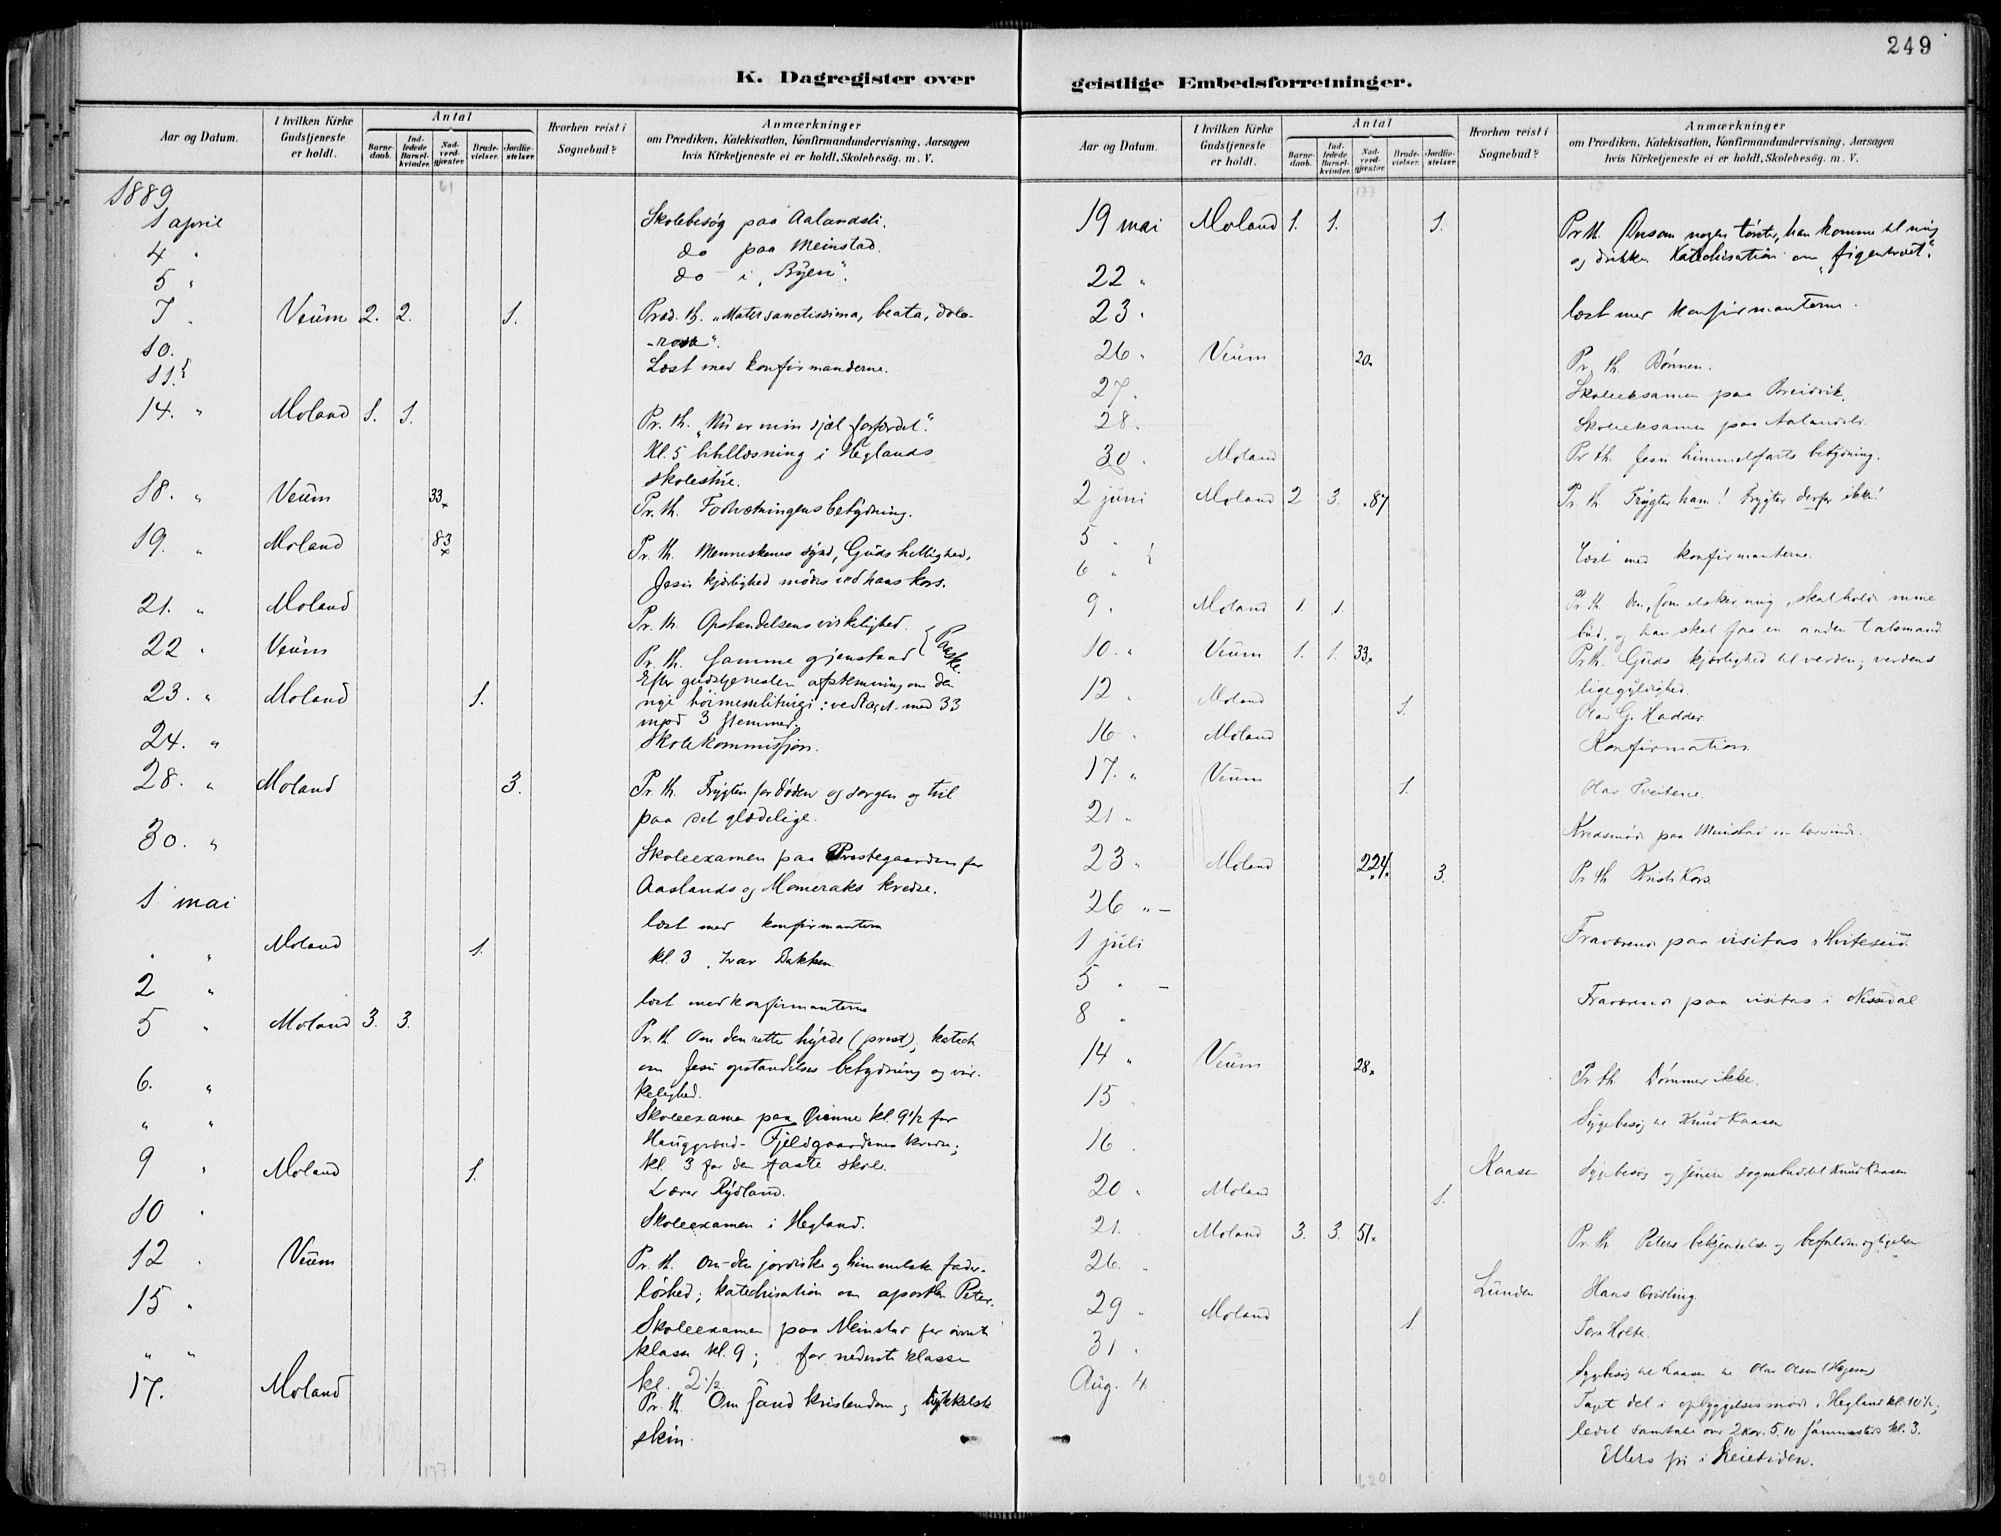 249
K. Dagregister over geistlige Embedsforretninger.
Aar og Datum. I hvilken Kirke Gudstjeneste er holdt. Antal Barnedaab. Indledede Barselkvinder. Nadverdgjæster. Brudevielser. Jordfæstelser. Hvorhen reist i Sognebud? Anmærkninger om Prædiken, Katekisation, Konfirmandundervisning, Aarsagen hvis Kirketjeneste ei er holdt, Skolebesøg. m. V.
61
1889
1 april Skolebesøg paa Aalandsli.
4 " do paa Meinstad.
5 " do i "Byen".
7 " Veum 2. 2. 1. Præd. th. "Mater sanctissima, beata, dolo-
-rosa".
10.
11. Læst med konfirmanderne.
14. " Moland 1. 1. Pr. th. "Nu er min sjæl forfærdet".
Kl. 5 bibellæsning i Heglands
skolestue.
18. " Veum 33 Pr. th. Forløsningens betydning.
19. " Moland 83 Pr. th. Menneskenes synd, Guds hellighed,
Jesu kjærlighed mødes ved hans kors.
21. " Moland Pr. th. Opstandelsens virkelighed.
22 " Veum Pr. th. samme gjenstand Paaske
Efter gudstjenesten afstemning om den
23. " Moland 1. nye høimesseliturgi: vedtaget med 33
mod 3 stemmer.
24. " Skolekommissjon.
28. " Moland 3. Pr. th. Frygten for døden og sorgen og tvil
paa det glædelige.
30. " Skoleexamen paa Prestegaarden for
Aaslands og Momeraks kredse.
1 mai læst med konfirmantern
" Moland 1. kl. 3 Ivar Bakken.
2 " læst med konfirmanterne
5 " Moland 3. 3. Pr. th Om den rette hyrde (prest), katech
om Jesu opstandelses betydning og vir-
6. " kelighed.
Skoleexamen paa kl. 9 1/2 for
" " Fjeldgaardenes kredse;
kl. 3 for den faste skole.
9 " Moland 1. Lærer Rydland.
10 " Skoleexamen i Hegland.
12 " Veum Pr. th. Om den jordiske og himmelske fader-
løshed; katechisation om apostlen Peter.
15 " Skoleexamen paa Meinstad for øverste
klasse kl. 9; for nederste klasse
" " kl. 2 1/2
17. Moland Pr. th. Om sand kristendom og
skin.
177
Aar og Datum. I hvilken Kirke Gudstjeneste er holdt. Antal Barnedaab. Indledede Barselkvinder. Nadverdgjæster. Brudevielser. Jordfæstelser. Hvorhen reist i Sognebud? Anmærkninger om Prædiken, Katekisation, Konfirmandundervisning, Aarsagen hvis Kirketjeneste ei er holdt, Skolebesøg. m. V.
177
19 mai Moland 1. 1. 1. Pr th. Dersom nogen tørster, han komme til mig
og drikke Katechisation om "figentræet".
22 "
23 " læst med konfirmanterne.
26 " Veum 20 Pr. th. Bønnen.
27. Skoleeksamen paa Breidvik.
28. Skoleeksamen paa Aalandsli.
30. Moland Pr th. Jesu himmelfarts betydning.
2 juni Moland 2 3. 87 Pr. th Frygter ham! Frygter derfor ikke!
5 "
6 " Læst med konfirmanterne.
9 " Moland 1. 1. Pr th Den, som elsker mig, skal holde mine
bud, og han skal faa en anden talsmand
10. " Veum 1. 1. 33 Pr th. Guds kjærlighed til verden; verdens
ligegyldighed.
12 " Moland 1. Olav G. Hadder.
16 " Moland Konfirmation
17. " Veum 1. Olav Tveitene.
21 " Kredsmøde paa Meinstad
23 " Moland 224 3. Pr th Kristi Kors.
26 " –
1 juli Fraværende paa visitas i Hviteseid.
5 " –
8 " Fraværende paa visitas i Nissedal
14 " Veum 28 Pr th Dømmer ikke.
15 Sygebesøg til Knud Kaasen
16 Kaasen Sygebesøg og senere sognebud til Knud Kaasen
20 " Moland 1.
21. Moland 3. 3. 51 Pr. th Peters bekjendelse og
26. Lunden Hans Qvisling.
29 " Moland 1 Tore Holte.
31 Sygebesøg til Kaasen
Aug. 4. Taget del i opbyggelsesmøde i Hegland kl. 10 1/2;
ledet samtale over 2 Kor. 5, 10 sammesteds kl. 3.
Ellers fri i
620